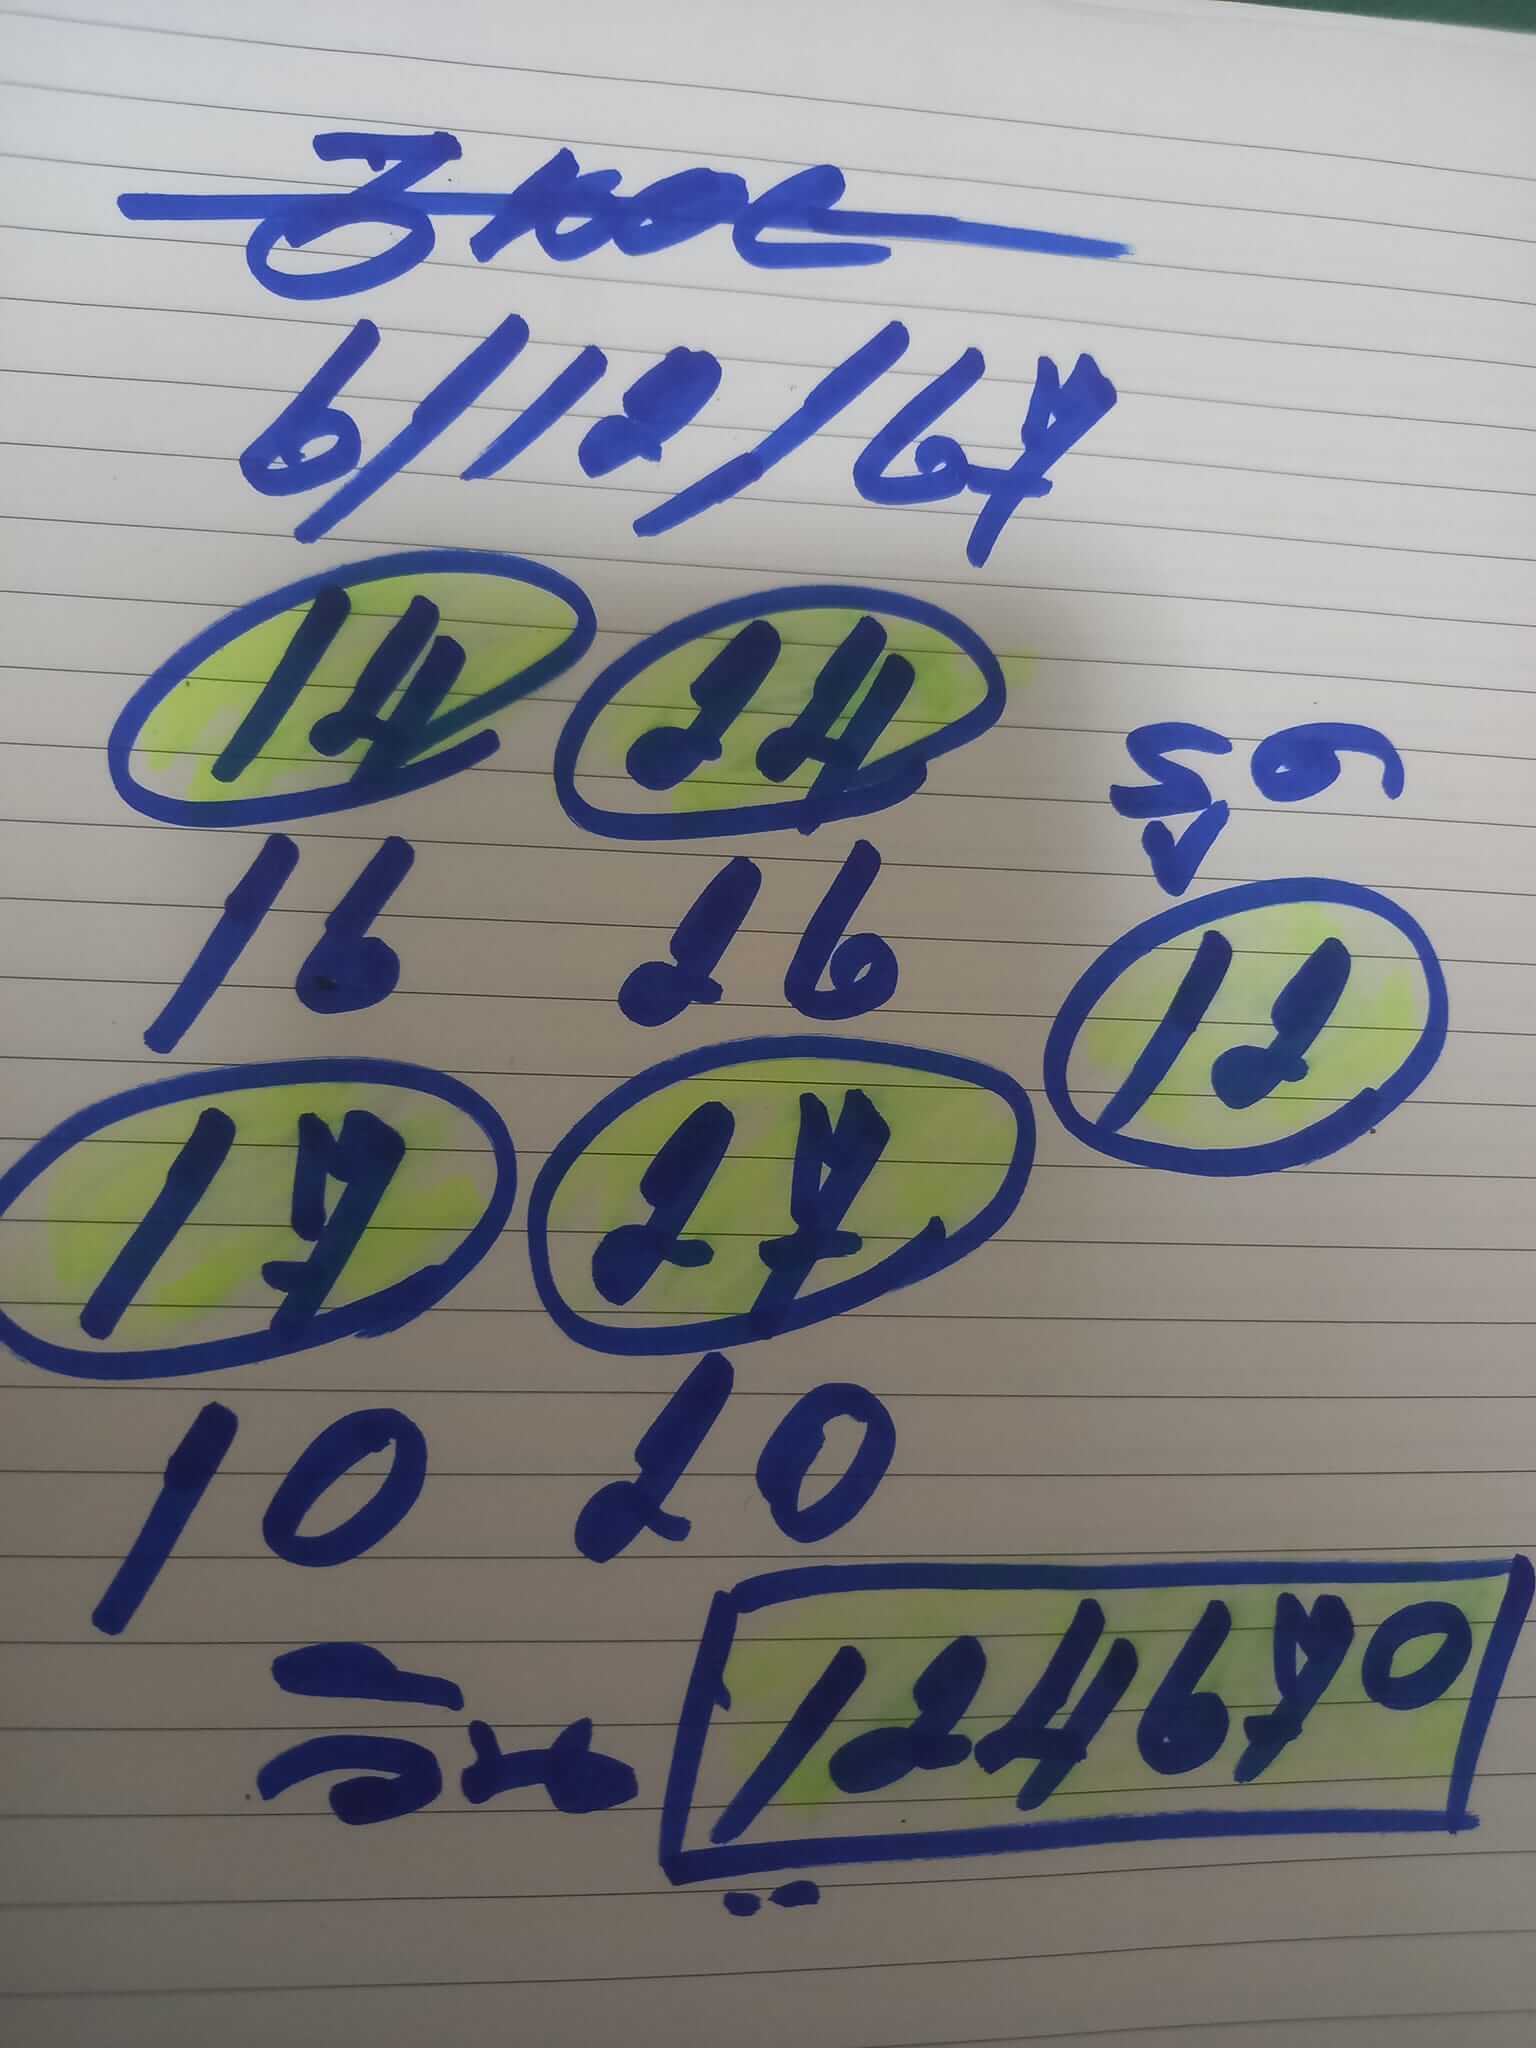 6/12/67
14 24
รูด
16 26
12
17 27
10 20
วิน 124670